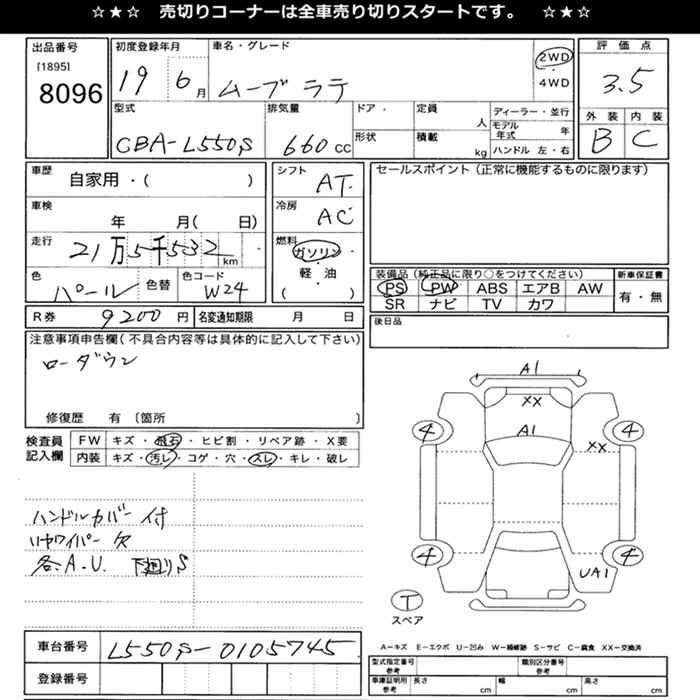 ☆★☆ 売切りコーナーは全車売り切りスタートです。 ☆★☆
出品番号
[1895]
8096
初度登録年月
19 6月
車名・グレード
ムーブ ラテ
2WD
・
4WD
評価点
3.5
外装 内装
B C
型式
CBA-L550S
排気量
660 CC
ドア・
形状
定員
人
積載
kg
ディーラー・並行
モデル年式 年
ハンドル 左・右
車歴
自家用・( )
車検
年 月( 日)
走行
21万5千532 km
色
パール
色替
色コード
W24
シフト
AT
冷房
AC
燃料
ガソリン
・
軽・油
( )
セールスポイント(正常に機能するものに限ります)
装備品(純正品に限り○をつけてください)
PS PW ABS エアB AW
SR ナビ TV カワ
新車保証書
有・無
R券 9200 円
名変通知期限 月 日
後日品
注意事項申告欄(不具合内容等は具体的に記入して下さい)
ローダウン
修復歴 有 〔箇所 〕
検査員記入欄
FW キズ・飛石・ヒビ割・リペア跡・X要
内装 キズ・汚レ・コゲ・穴・スレ・キレ・破レ
ハンドルカバー付
リヤワイパー欠
各A.U. 下廻りS
A1
XX
A1
4
4
XX
4
4
UA1
T
スペア
A-キズ E-エクボ U-凹み W-補修跡 S-サビ C-腐食 XX-交換済
車台番号
L550S-0105745
登録番号
型式指定番号
参考
類別区分番号
参考
車庫証明用
参考
長さ cm
幅 cm
高さ cm